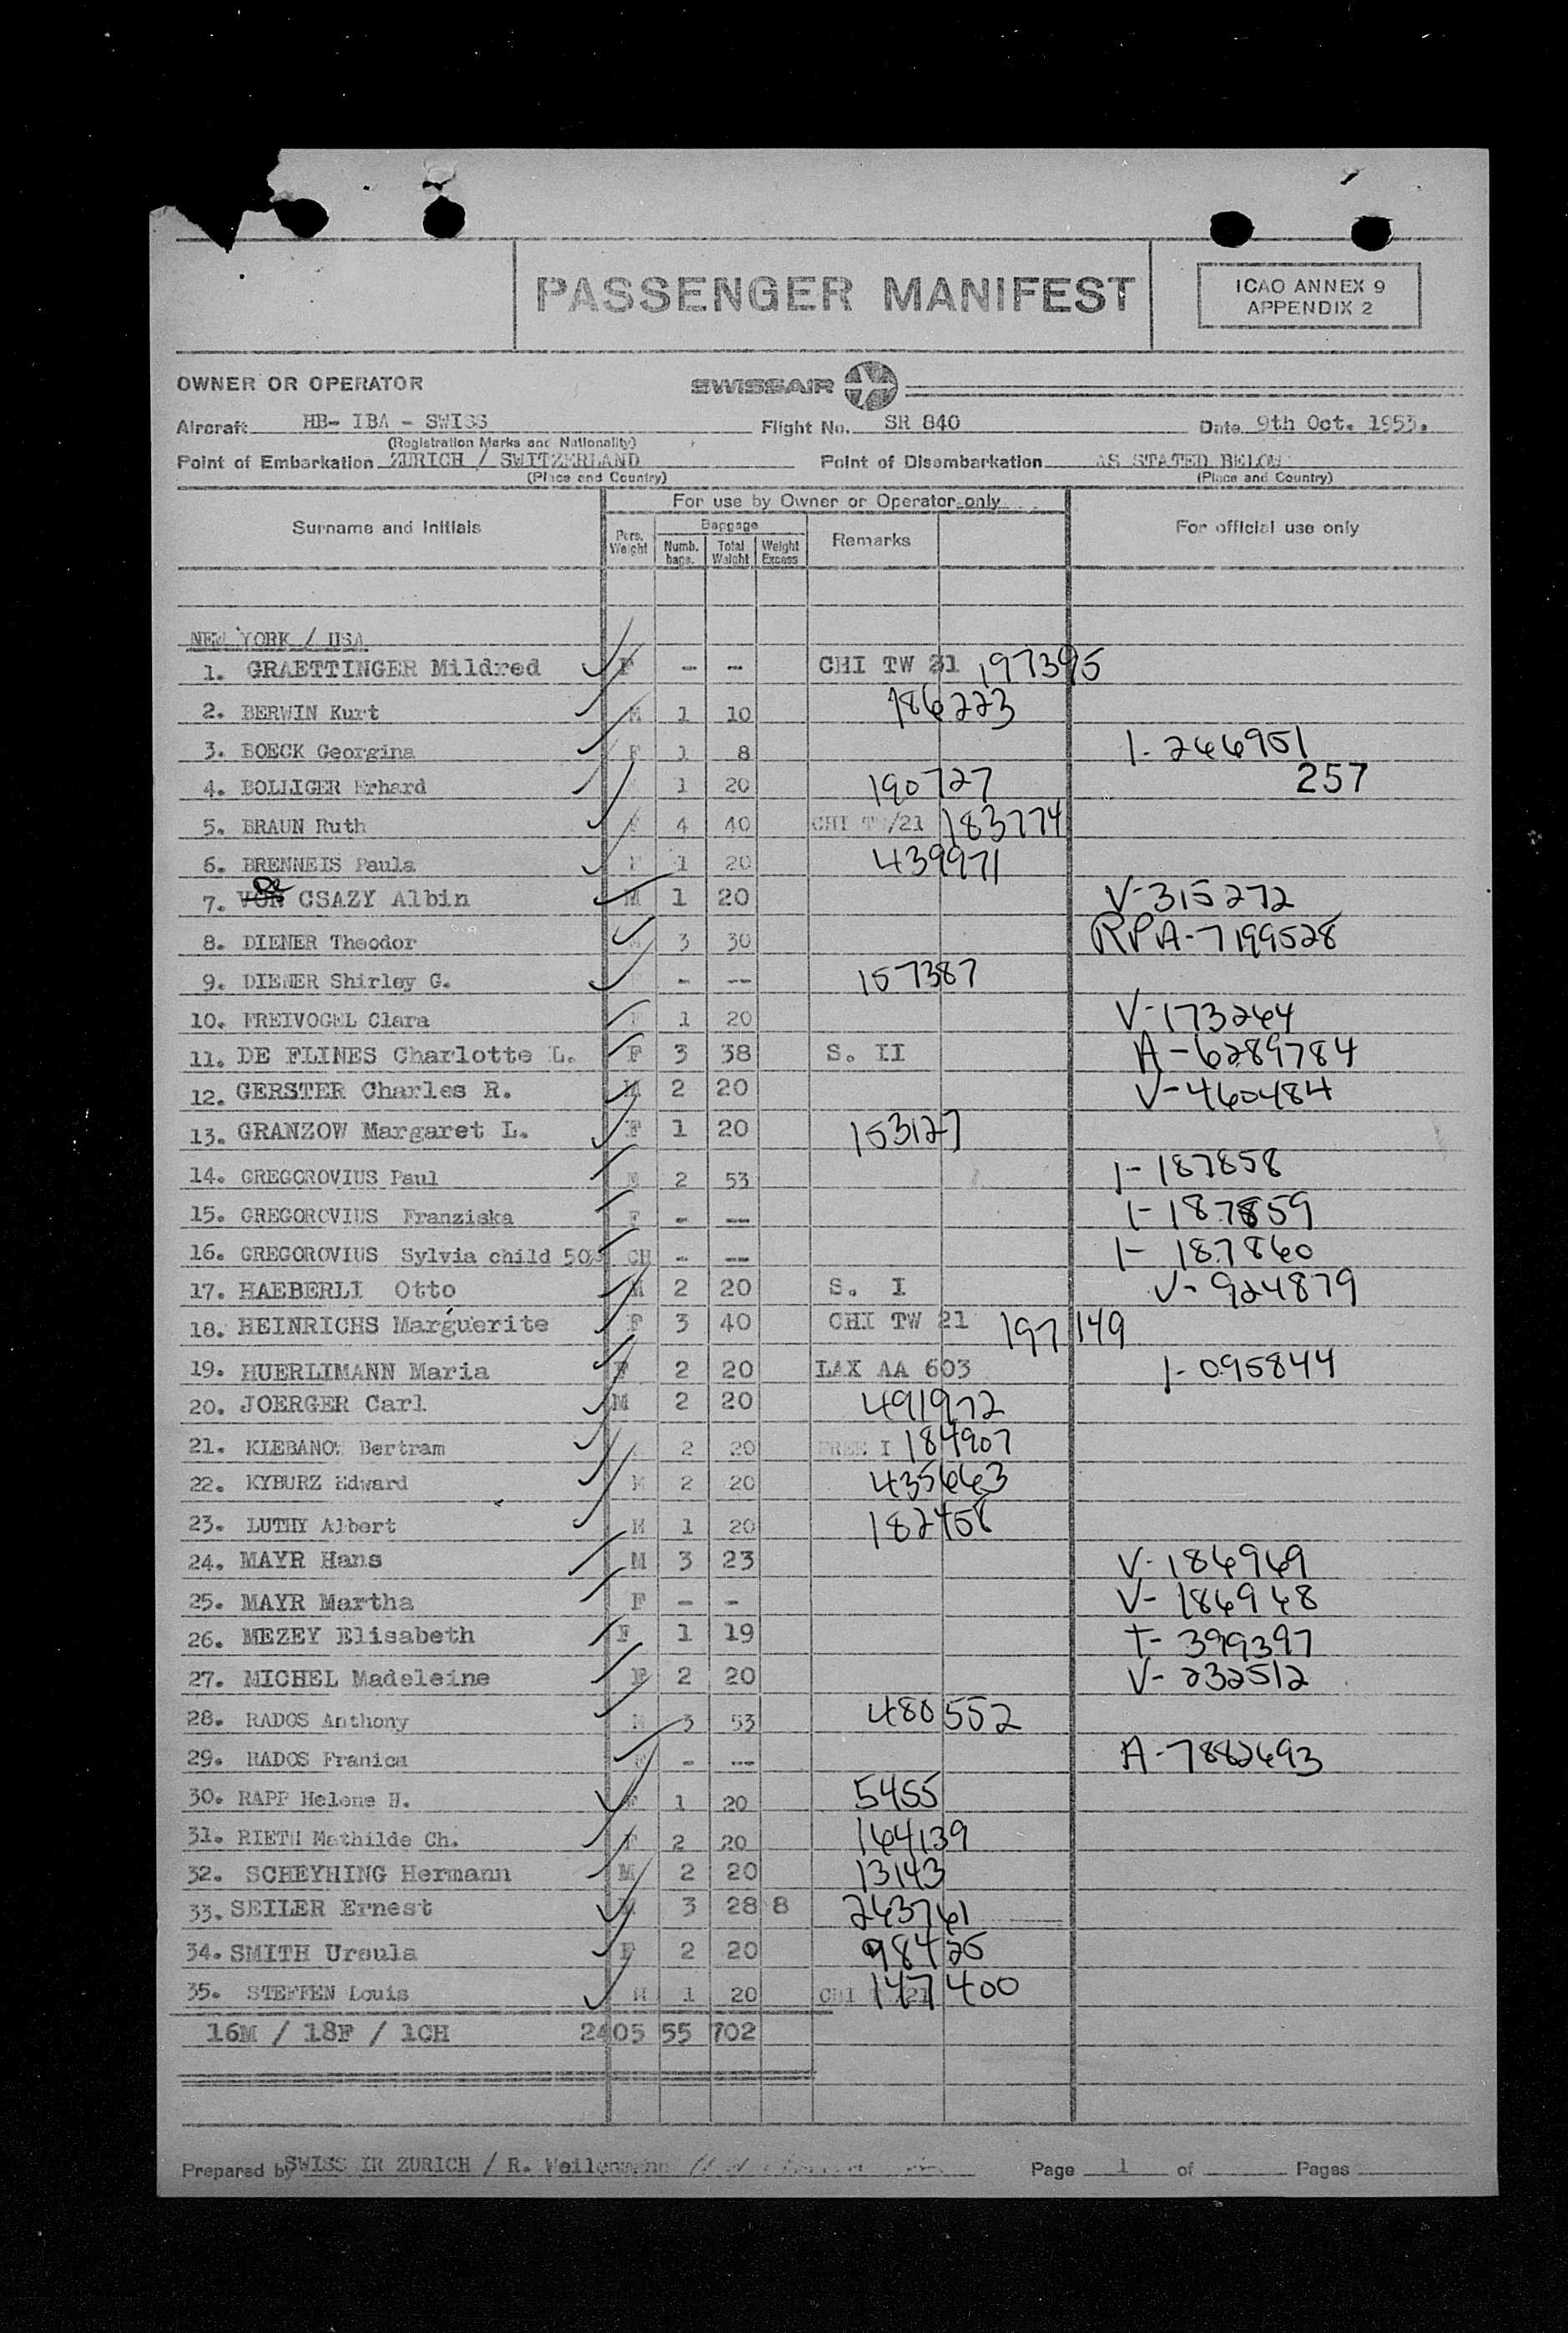 PASSENGER MANIFEST
ICAO ANNEX 9
APPENDIX 2
OWNER OR OPERATOR SWISSAIR
Aircraft HB- IBA - SWISS Flight No. SR 840 Date 9th Oct. 1953.
(Registration Marks and Nationality)
Point of Embarkation ZURICH / SWITZERLAND Point of Disembarkation AS STATED BELOW
(Place and Country) (Place and Country)
For use by Owner or Operator only
Surname and Initials Pers. Weight Baggage Numb. bags. Total Weight Weight Excess Remarks For official use only
NEW YORK / USA
1. GRAETTINGER Mildred F - -- CHI TW 21 197395
2. BERWIN Kurt M 1 10 186223
3. BOECK Georgina F 1 8 1- 266951
257
4. BOLLIGER Erhard 1 20 190727
5. BRAUN Ruth F 4 40 CHI TW/21 183774
6. BRENNEIS Paula F 1 20 439971
7. VON DE CSAZY Albin M 1 20 V-315272
8. DIENER Theodor M 3 30 RPA-7199528
9. DIENER Shirley G. - -- 157387
10. FREIVOGEL Clara F 1 20 V-173264
11. DE FLINES Charlotte L. F 3 38 S. II A-6289784
12. GERSTER Charles R. M 2 20 V-460484
13. GRANZOW Margaret L. F 1 20 153127
14. GREGOROVIUS Paul M 2 53 1-187858
15. GREGOROVIUS Franziska F - -- 1-187859
16. GREGOROVIUS Sylvia child 50% CH - -- 1- 187860
17. HAEBERLI Otto M 2 20 S. I V- 924879
18. HEINRICHS Marguerite F 3 40 CHI TW 21 197149
19. HUERLIMANN Maria F 2 20 LAX AA 603 1-095844
20. JOERGER Carl M 2 20 491972
21. KLEBANOW Bertram 2 20 FREE I 184907
22. KYBURZ Edward M 2 20 435663
23. LUTHY Albert M 1 20 182458
24. MAYR Hans M 3 23 V-186969
25. MAYR Martha F - - V- 186968
26. MEZEY Elisabeth F 1 19 T- 399397
27. MICHEL Madeleine F 2 20 V- 232512
28. RADOS Anthony M 3 53 480552
29. RADOS Franica F - -- A-7882693
30. RAPP Helene H. F 1 20 5455
31. RIETH Mathilde Ch. F 2 20 164139
32. SCHEYHING Hermann M 2 20 13143
33. SEILER Ernest M 3 28 8 243761
34. SMITH Ursula F 2 20 98425
35. STEFFEN Louis M 1 20 CHI 21 147400
16M / 18F / 1CH 2405 55 702
Prepared by SWISS IR ZURICH / R. Weilenmann Page 1 of Pages